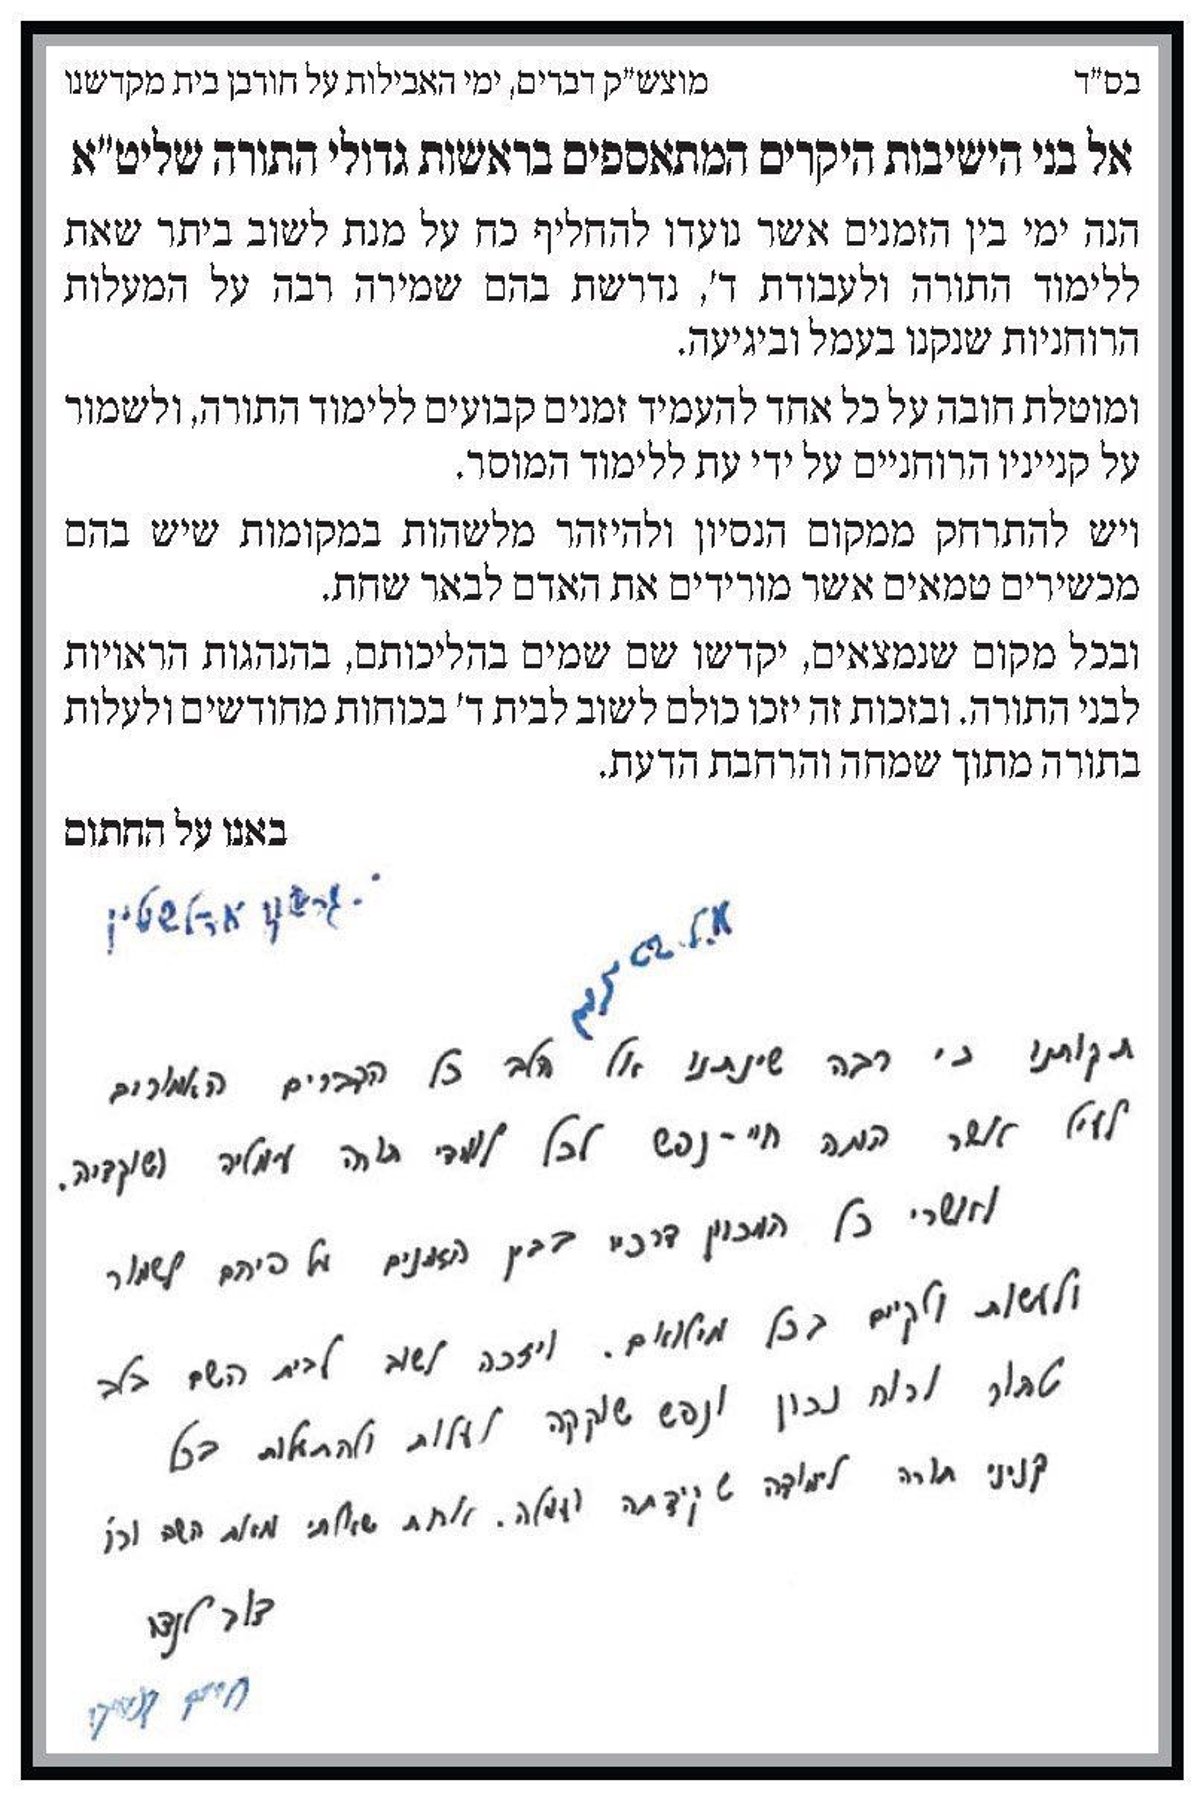 בס״ד מוצש״ק דברים, ימי האבילות על חורבן בית מקדשנו
אל בני הישיבות היקרים המתאספים בראשות גדולי התורה שליט״א
הנה ימי בין הזמנים אשר נועדו להחליף כח על מנת לשוב ביתר שאת
ללימוד התורה ולעבודת ד', נדרשת בהם שמירה רבה על המעלות
הרוחניות שנקנו בעמל וביגיעה.
ומוטלת חובה על כל אחד להעמיד זמנים קבועים ללימוד התורה, ולשמור
על קנייניו הרוחניים על ידי עת ללימוד המוסר.
ויש להתרחק ממקום הנסיון ולהיזהר מלשהות במקומות שיש בהם
מכשירים טמאים אשר מורידים את האדם לבאר שחת.
ובכל מקום שנמצאים, יקדשו שם שמים בהליכותם, בהנהגות הראויות
לבני התורה. ובזכות זה יזכו כולם לשוב לבית ד' בכוחות מחודשים ולעלות
בתורה מתוך שמחה והרחבת הדעת.
באנו על החתום
גרשון אדלשטיין
תקותנו כי רבה שינתנו אל הלב כל הדברים האמורים
לעיל אשר המה חיי-נפש לכל לומדי תורה עמליה ושוקדיה.
ואשרי כל המכוין דרכיו בבין הזמנים על פיהם לשמור
ולעשות ולקיים בכל מילואם. ויזכה לשוב לבית השם בלב
טהור ורוח נכון ונפש שוקקה לעלות ולהתעלות בכל
קניני תורה לימודה שקידתה ועמלה. אחת שאלתי מאת השם וכו'
דוב לנדו
חיים קניבסקי